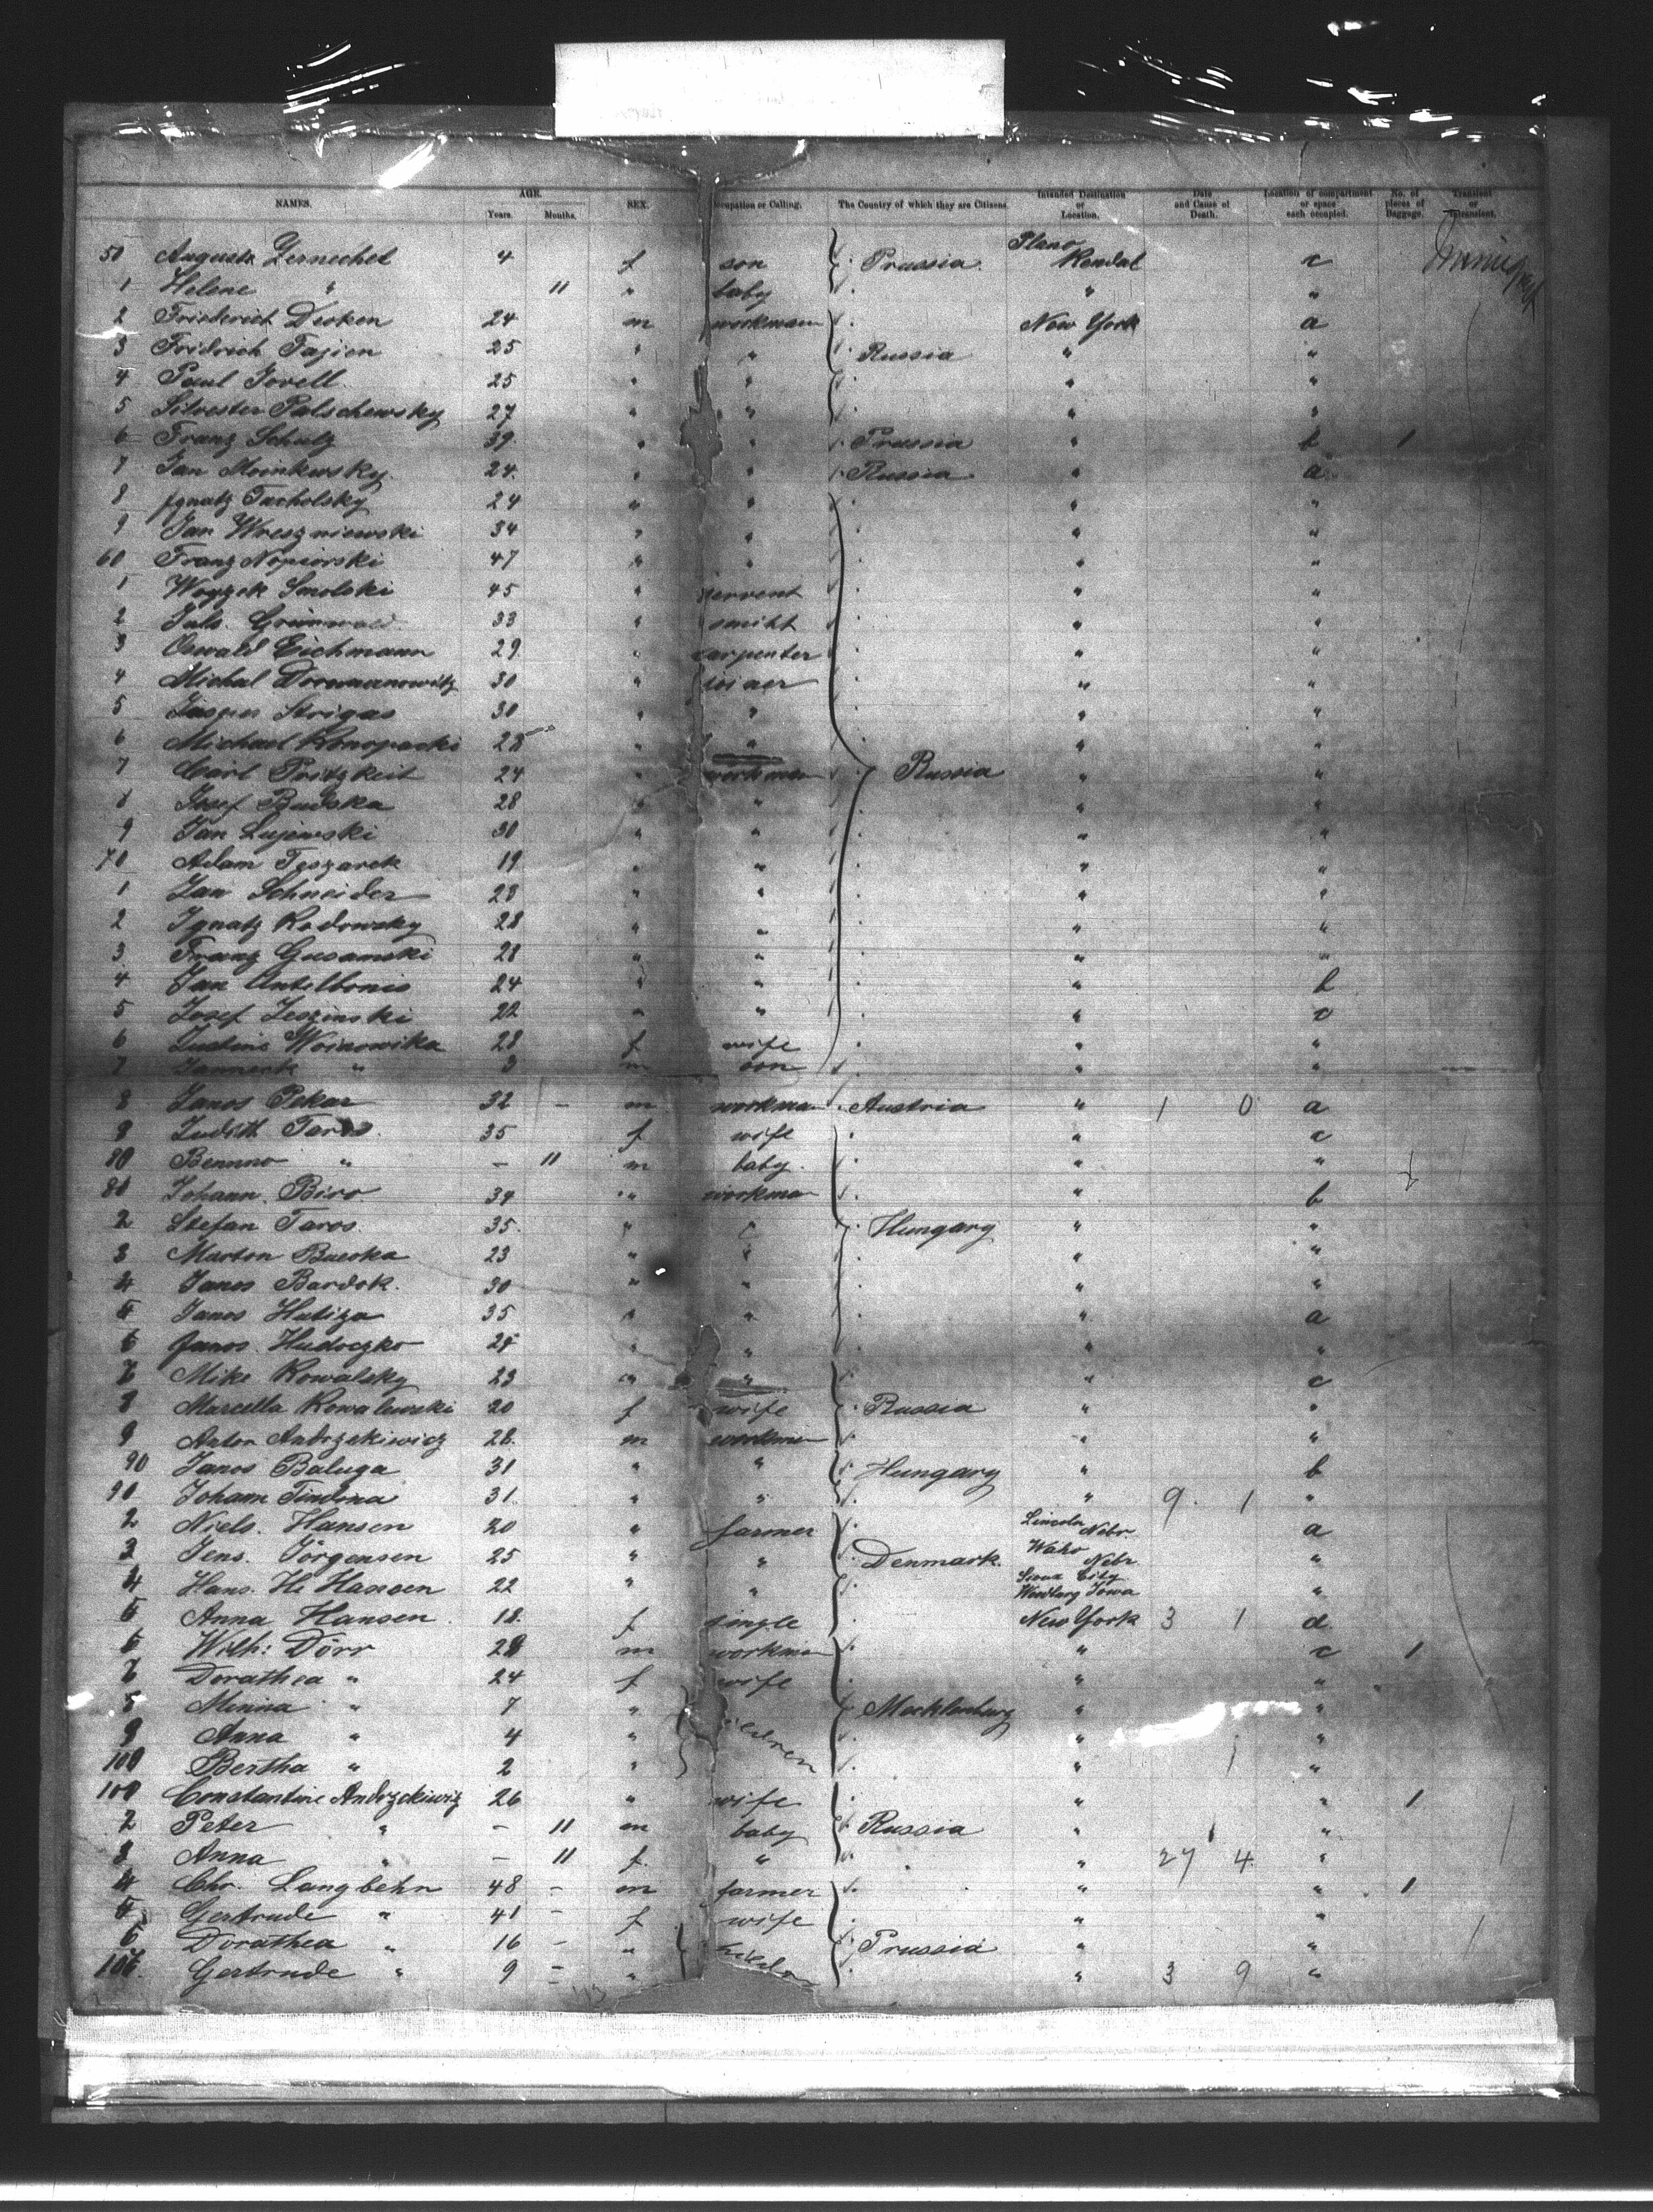 NAMES. AGE. Years. Months. SEX. Occupation or Calling. The Country of which they are Citizens. Intended Destination or Location. Date and Cause of Death. Location of compartment or space each occupied. No. of pieces of Baggage. Transient or
Plano
50 Auguste Zernechel 4 f son Prussia Kendal c
1 Helene " 11 " baby " "
2 Friederich Decken 24 m workman New York a
3 Fridrich Tajien 25 " " Russia " "
4 Paul Jorell 25 " " " "
5 Silvester Palschewsky 27 " " " "
6 Franz Schulz 39 " " Prussia " b 1
7 Jan Moinkewsky 24 " " Russia " a
8 Ignatz Tucholsky 24 " " " "
9 Jan Wreszniewski 34 " " " "
60 Franz Nopiorski 47 " " " "
1 Woyzek Smolski 45 " servent " "
2 Juls. Grünwald 33 " smiht " "
3 Oswald Eichmann 29 " carpenter " "
4 Michal Dormanowitz 30 " " "
5 Strigas 30 " " " "
6 Michael Konopacki 28 " " " "
7 Carl Pritzkeit 24 " workman Russia " "
8 Josef Budska 28 " " " "
9 Jan Lujewski 30 " " " "
70 Adam Teszarek 19 " " " "
1 Jan Schneider 28 " " " "
2 Ignatz Rodowsky 28 " " " "
3 Franz Gusamski 28 " " " "
4 Jan Antelbonis 24 " " " b
5 Josef Leszinski 22 " " " c
6 Justine Woinowika 28 f wife " "
7 Janneck " 3 m son " "
8 Janos Pekar 32 – m workman Austria " 1 0 a
9 Judith Taros 35 f wife " c
80 Bennno " – 11 m baby " "
80 Johann Biro 34 " workman " b
2 Stefan Taros 35 " " Hungary " "
3 Marton Bucska 23 " " " "
4 Janos Bardok 30 " " " "
5 Janos Hutiza 35 " " " a
6 Janos Hudoczko 28 " " " "
7 Mike Kowalsky 23 " " " c
8 Marcella Kowalewski 20 f wife Russia " "
9 Anton Andrzekiwicz 28 m workman " "
90 Janos Baluga 31 " " Hungary " b
90 Joham Timdona 31 " " " 9 1 "
2 Niels Hansen 20 " farmer Lincoln Nebr a
3 Jens Jörgensen 25 " " Denmark Waho Nebr "
4 Hans. He Hansen 22 " " Sioux City Iowa "
5 Anna Hansen 18 f single New York 3 1 d
6 Wilh: Dörr 28 m workman " c 1
7 Dorathea " 24 f wife " "
8 Minna " 7 " Mecklenburg " "
9 Anna " 4 " children " "
100 Bertha " 2 " " "
100 Constantine Andrzekiwiz 26 " wife " " 1
2 Peter " – 11 m baby Russia " "
3 Anna " – 11 f " " 27 4 "
4 Chr. Langbehn 48 – m farmer " " 1
5 Gertrude " 41 – f wife " "
6 Dorathea " 16 – " Prussia " "
107 Gertrude " 9 – " " 3 9 "